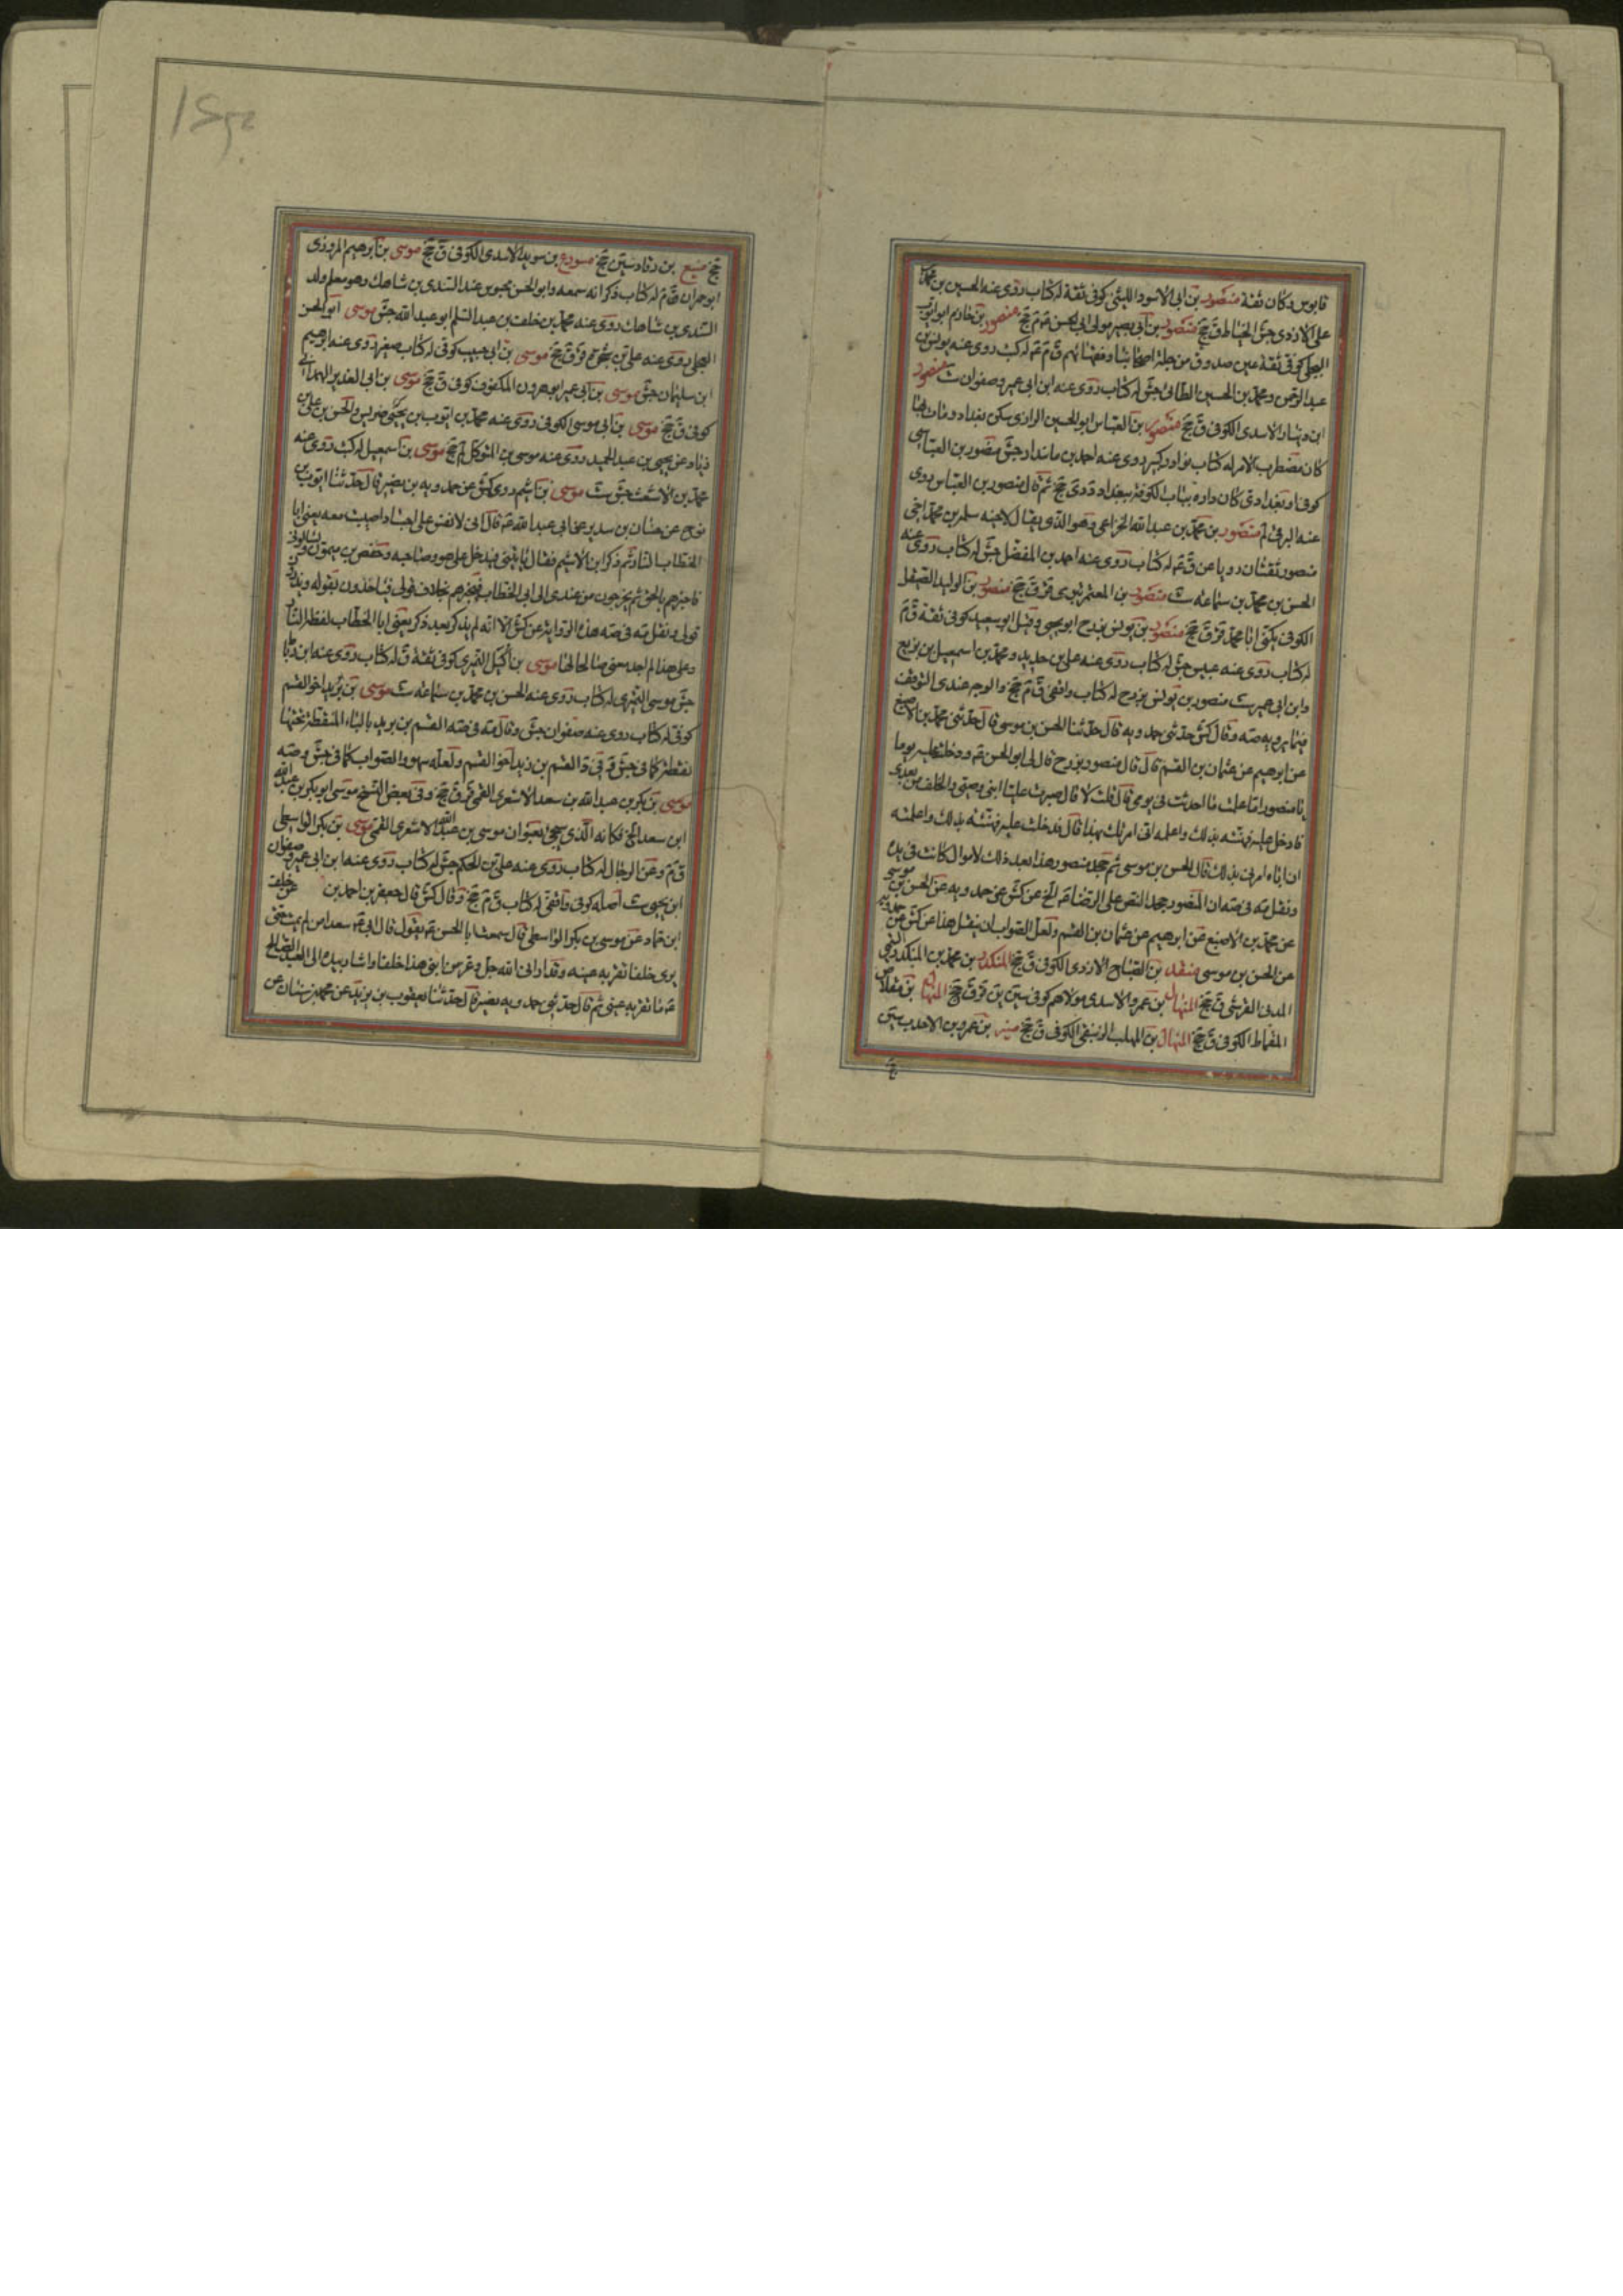 قابوس وكان ثقة منصور بن ابى الاسود الليثى كوفى ثقة له كتاب روى عنه الحسين بن محمد
على الازدى جش الخياط ق جخ منصور بن ابى بصير مولى ابى الحسن م جخ منصور بن حازم ابو ايوب
البجلى كوفى ثقة عين صدوق من جلة اصحابنا وفقهائهم ق م له كتب روى عنه يونس بن
عبد الرحمن ومحمد بن الحسين الطائى جش له كتاب روى عنه ابن ابى عمير وصفوان ست منصور
ابن دينار الاسدى الكوفى ق جخ منصور بن العباس ابو الحسين الرازى سكن بغداد ومات بها
كان مضطرب الامر له كتاب نوادر كبير روى عنه احمد بن مابنداد جش منصور بن العباس
كوفى او بغدادى كان داره بباب الكوفة ببغداد دى جخ ثم قال منصور بن العباس روى
عنه البرقى لم منصور بن محمد بن عبد الله الخزاعى وهو الذى يقال لاخيه سلمة بن محمد اخى
منصور ثقتان رويا عن ق له كتاب روى عنه احمد بن المفضل جش له كتاب روى عنه
الحسن بن محمد بن سماعة ست منصور بن المعتمر بترى قر ق جخ منصور بن الوليد الصيقل
الكوفى يكنى ابا محمد قر ق جخ منصور بن يونس بزرج ابو يحيى وقيل ابو سعيد كوفى ثقة ق م
له كتاب روى عنه عبيس جش له كتاب روى عنه على بن حديد ومحمد بن اسمعيل بن بزيع
وابن ابى عمير ست منصور بن يونس بزرج له كتاب واقفى ق م جخ والوجه عندى التوقف
فيما يرويه صه وقال كش حدثنى حمدويه قال حدثنا الحسن بن موسى قال حدثنى محمد بن الاصبغ
عن ابرهيم عن عثمان بن القسم قال قال منصور بزرج قال لى ابو الحسن ع ودخلت عليه يوما
يا منصور اما علمت ما احدثت فى يومى قال قلت لا قال صيرت عليا ابنى وصيى والخلف من بعدى
فادخل عليه فهنئه بذلك واعلمه انى امرتك بهذا قال فدخلت عليه فهنئته بذلك واعلمته
ان اباه امرنى بذلك قال الحسن بن موسى ثم جحد منصور هذا بعد ذلك لاموال كانت فى يده
ونقل مته فى صه ان المنصور جحد النص على الرضا ع الخ عن كش عن حمدويه عن الحسن بن موسى
عن محمد بن الاصبغ عن ابرهيم عن عثمان بن القسم ولعل الصواب ان ينقل هذا عن كش عن حمدويه
عن الحسن بن موسى منقذ بن الصباح الازدى الكوفى ق جخ المنكدر بن محمد بن المنكدر التيمى
المدنى القرشى ق جخ المنهال بن عمرو الاسدى مولاهم كوفى سين ين قر ق جخ المنهال بن مقلاص
القماط الكوفى ق جخ المنهال بن المهلب الكوفى ق جخ بن عمرو بن الاحدب سين
جخ منيع بن رقاد سين جخ بن سويد الاسدى الكوفى ق جخ موسى بن ابرهيم المروزى
ابو حمران م له كتاب ذكر انه سمعه وابو الحسن محبوس عند السندى بن شاهك وهو معلم ولد
السندى بن شاهك روى عنه محمد بن خلف بن عبد السلم ابو عبد الله جش موسى ابو الحسن
العجلى روى عنه على بن ق جخ موسى بن ابى حبيب كوفى له كتاب صغير روى عنه ابرهيم
ابن سليمان جش موسى بن ابى عمير ابو هرون المكفوف كوفى ق جخ موسى بن ابى الغدير الهمدانى
كوفى ق جخ موسى بن ابى موسى الكوفى روى عنه محمد بن ايوب بن يحيى ضريس والحسن بن على بن
زياد عن يحيى بن عبد الحميد روى عنه موسى بن المتوكل لم جخ موسى بن اسمعيل له كتب روى عنه
محمد بن الاشعث جش ست موسى بن اشيم روى كش عن حمدويه بن نصير قال حدثنا ايوب بن
نوح عن حنان بن سدير عن ابى عبد الله ع قال انى لانفس على اجساد اصيبت معه يعنى ابا
الخطاب النار ثم ذكر ابن الاشيم فقال كان يأتينى فيدخل على هو وصاحبه وحفص بن ميمون فيسألونى
فاخبرهم بالحق ثم يخرجون من عندى الى ابى الخطاب فيخبرهم بخلاف قولى فيأخذون بقوله ويذرون
قولى ونقل مته فى صه هذه الرواية عن كش الا انه لم يذكر بعد ذكر يعنى ابا الخطاب لفظة النار
وعلى هذا لم اجد معنى مناسبا لها موسى بن اكيل النميرى كوفى ثقة ق له كتاب روى عنه ابن رباط
جش موسى النميرى له كتاب روى عنه الحسن بن محمد بن سماعة ست موسى بن بريد اخو القسم
كوفى له كتاب روى عنه صفوان جش وقال مته فى صه القسم بن بريد بالباء المنقطة تحتها
نقطة كما فى جش وفى د القسم بن يزيد اخو القسم ولعله سهو والصواب كما فى جش وصه
موسى بن بكر بن عبد الله بن سعد الاشعرى القمى ق جخ وفى بعض النسخ موسى ابو بكر بن عبد الله
ابن سعد الخ فكانه الذى سيجئ بعنوان موسى بن عبد الله الاشعرى القمى موسى بن بكر الواسطى
ق م وعن الرجال له كتاب روى عنه على بن الحكم جش له كتاب روى عنه ابن ابى عمير وصفوان
ابن يحيى ست اصله كوفى واقفى له كتاب ق م جخ وقال كش قال جعفر بن احمد بن عن خلف
ابن حماد عن موسى بن بكر الواسطى قال سمعت ابا الحسن ع يقول قال ابى ع سعد امرؤ لم يمت حتى
يرى خلفا تقر به عينه وقد ارانى الله جل وعز من ابنى هذا خلفا واشار بيده الى العبد الصالح
ع ما تقر به عينى ثم قال حدثنى حمدويه بن نصير قال حدثنا يعقوب بن يزيد عن محمد بن سنان عن